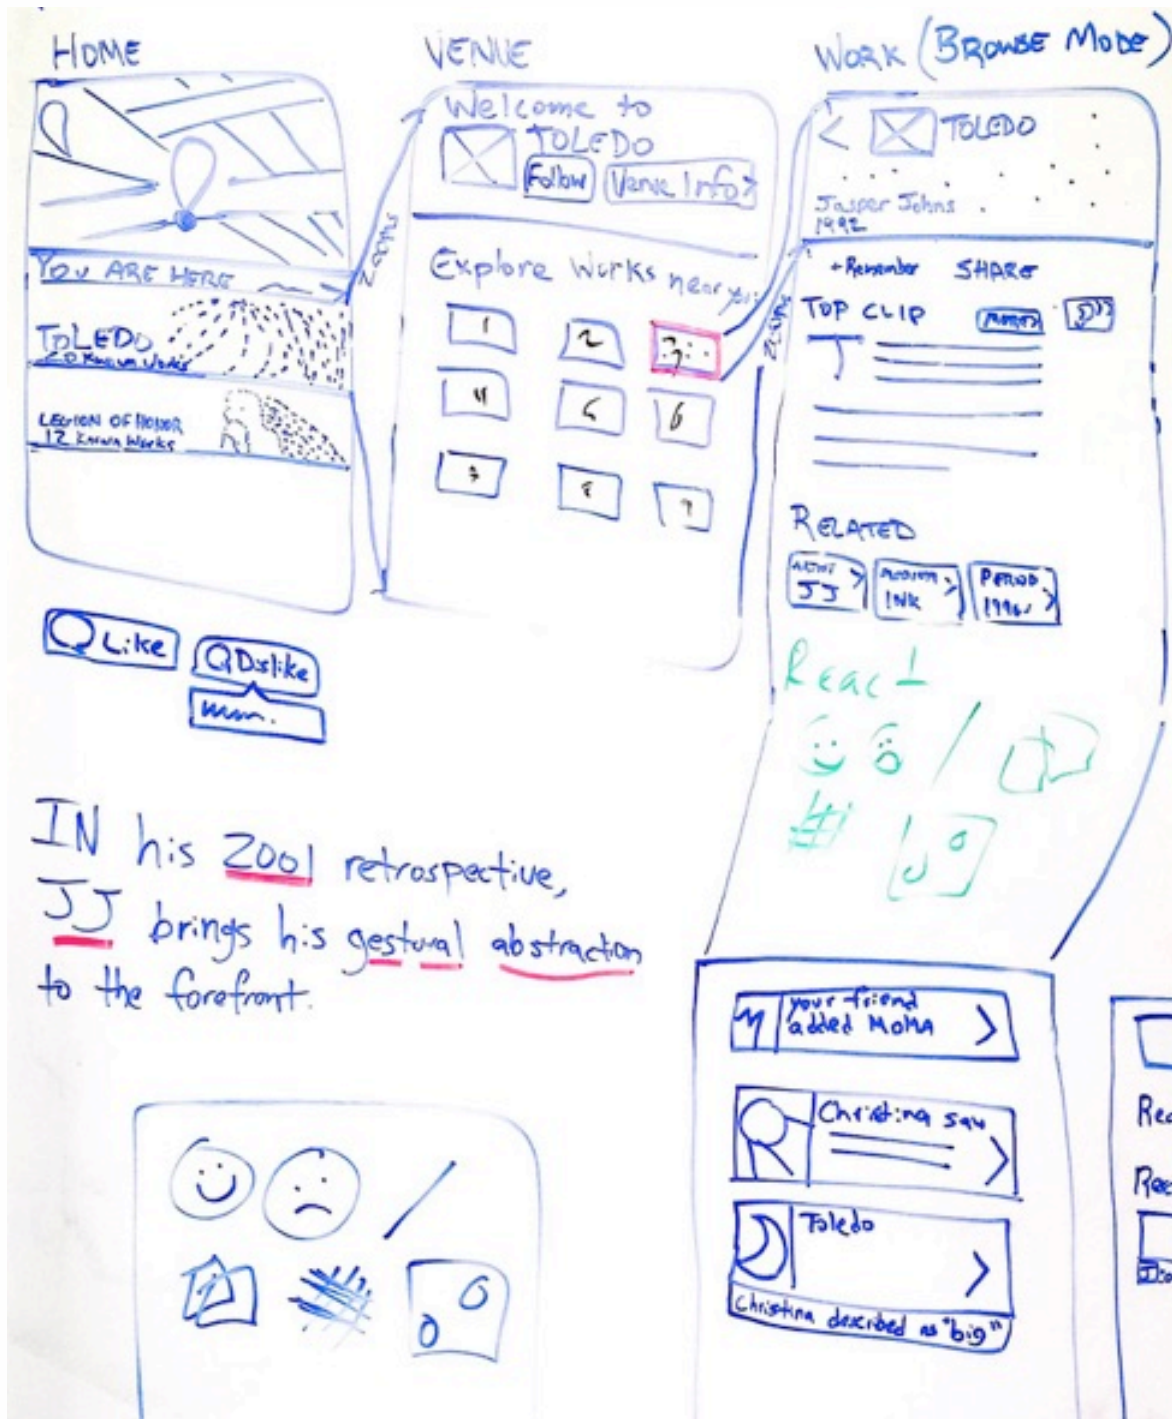 HOME
YOU ARE HERE
TOLEDO
20 Known Works
LEGION OF HONOR
12 Known Works
Zooms
VENUE
Welcome to
TOLEDO
Follow
Venue Info >
Explore Works near you:
1
2
3
4
5
6
7
8
9
Zooms
WORK (BROWSE MODE)
< TOLEDO
Jasper Johns
1992
+ Remember SHARE
TOP CLIP
RELATED
JJ >
INK >
PERIOD
1990s >
React
Like
Dislike
IN his 2001 retrospective,
JJ brings his gestural abstraction
to the forefront.
your friend
added MoMA >
Christina saw >
Toledo >
Christina described as "big"